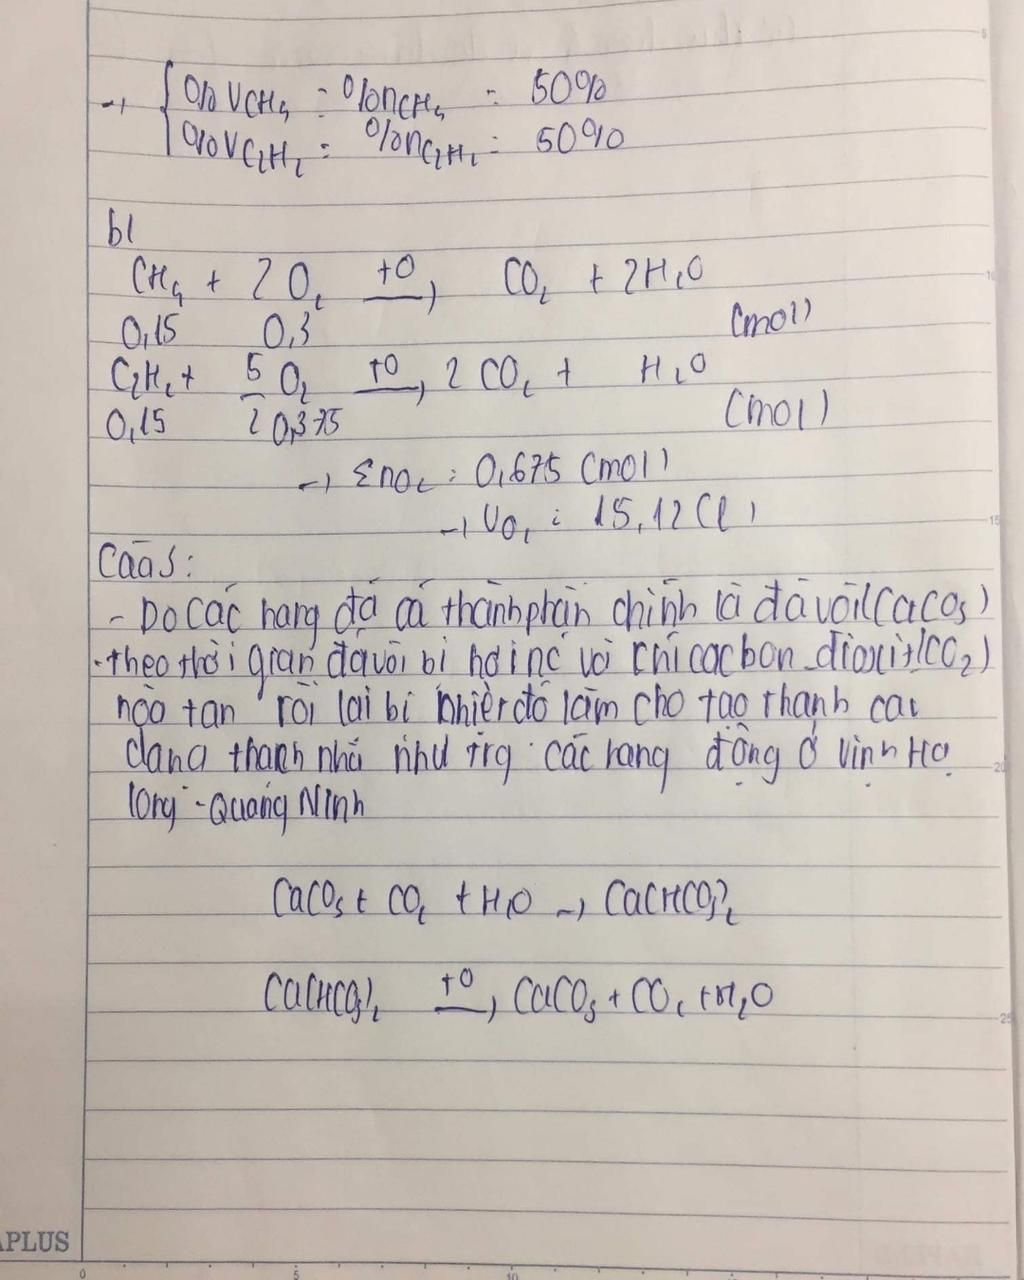 → { %V CH₄ = %n CH₄ = 50%
%V C₂H₂ = %n C₂H₂ = 50%
b/
CH₄ + 2O₂ →(t⁰) CO₂ + 2H₂O
0,15 0,3 (mol)
C₂H₂ + 5/2 O₂ →(t⁰) 2CO₂ + H₂O
0,15 0,375 (mol)
→ Σn O₂ = 0,675 (mol)
→ V O₂ = 15,12 (l)
Câu 5:
- Do các hang đá có thành phần chính là đá vôi (CaCO₃)
theo thời gian đá vôi bị hơi nc và khí cacbon đioxit (CO₂)
hòa tan rồi lại bị nhiệt độ làm cho tạo thành các
dạng thạch nhũ như trg các hang động ở Vịnh Hạ
Long - Quảng Ninh
CaCO₃ + CO₂ + H₂O → Ca(HCO₃)₂
Ca(HCO₃)₂ →(t⁰) CaCO₃ + CO₂ + H₂O
APLUS
5
10
15
20
25
0 5 10